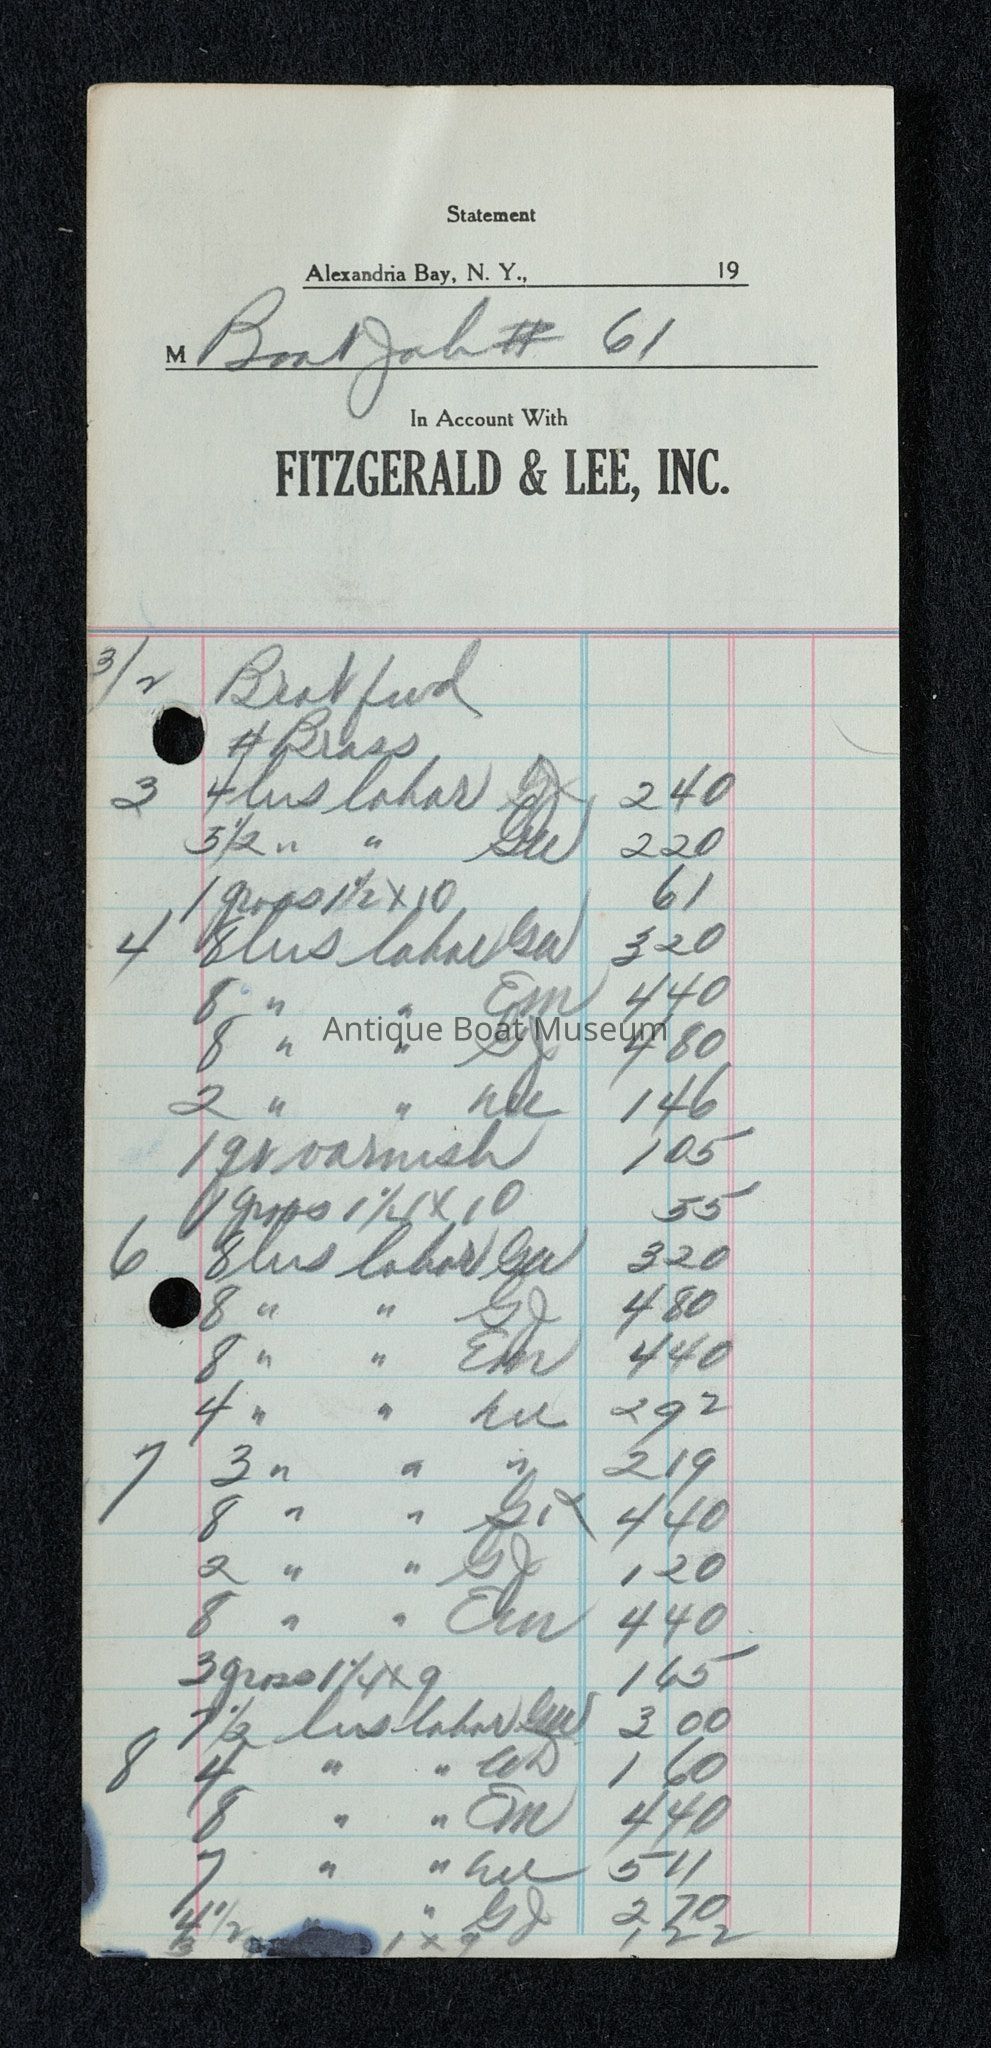 Statement
Alexandria Bay, N. Y., 19
M Boat Job # 61
In Account With
FITZGERALD & LEE, INC.
3/2 Brot fwd
# Brass
3 4 hrs labor GJ 2 40
5 1/2 " " GW 2 20
1 gross 1 1/2 x 10 61
4 8 hrs labor GW 3 20
8 " " Em 4 40
8 " " GJ 4 80
Antique Boat Museum
2 " " 1 46
1 qt varnish 1 05
1 gross 1 1/4 x 10 55
6 8 hrs labor GW 3 20
8 " " GJ 4 80
8 " " Em 4 40
4 " " 2 92
7 3 " " " 2 19
8 " " 4 40
2 " " GJ 1 20
8 " " Em 4 40
3 gross 1 1/4 x 9 1 65
7 1/2 hrs labor GW 3 00
8 4 " " 1 60
8 " " Em 4 40
7 " " 5 11
4 1/2 " " GJ 2 70
1 x 9 1 22